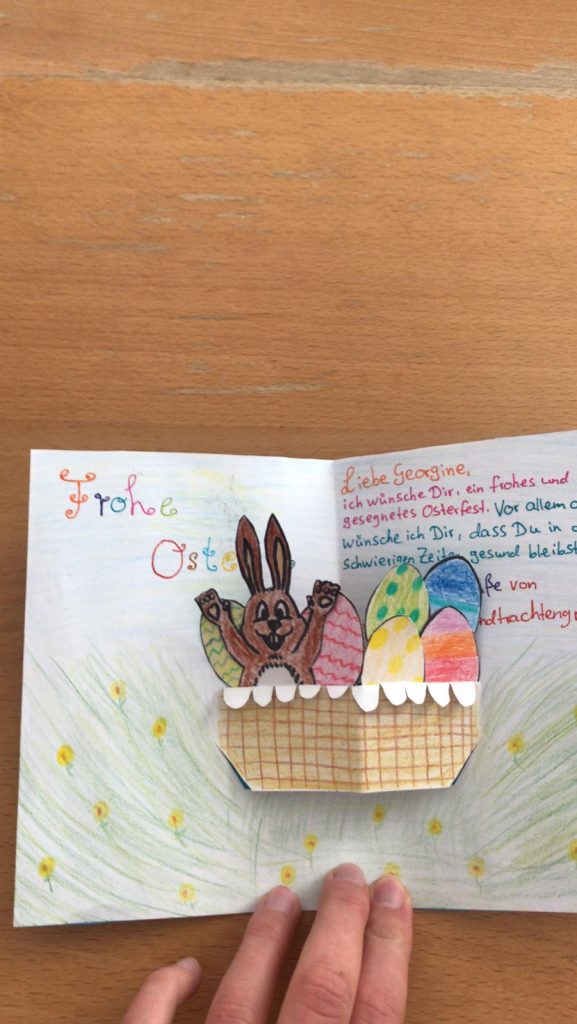 Frohe
Oste
Liebe Georgine,
ich wünsche Dir, ein frohes und
gesegnetes Osterfest. Vor allem
wünsche ich Dir, dass Du in
schwierigen Zeiten gesund bleibst
von